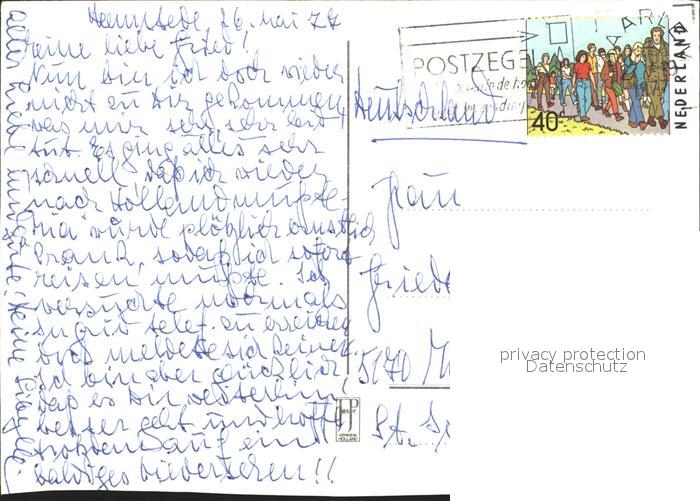 Heemstede 26. Mai 77
Meine liebe Friedl!
Nun bin ich doch wieder
nicht zu Dir gekommen
was mir sehr, sehr leid
tut. Es ging alles sehr
schnell daß ich wieder
nach Holland mußte.
Ria wurde plötzlich ernstlich
krank, sodaß ich sofort
reisen mußte. Ich
versuchte nochmals
Ingrid telef. zu erreichen
doch meldete sich keiner.
Ich bin aber glücklich
daß es Dir weiterhin
besser geht und hoffe
trotzdem auf ein
baldiges Wiedersehen!!
alles Liebe und Gute! Deine
POSTZEGE
NEDERLAND
40
Deutschland
Frau
Friede
5170
St.
JosPé
ARNHEM
HOLLAND
privacy protection
Datenschutz